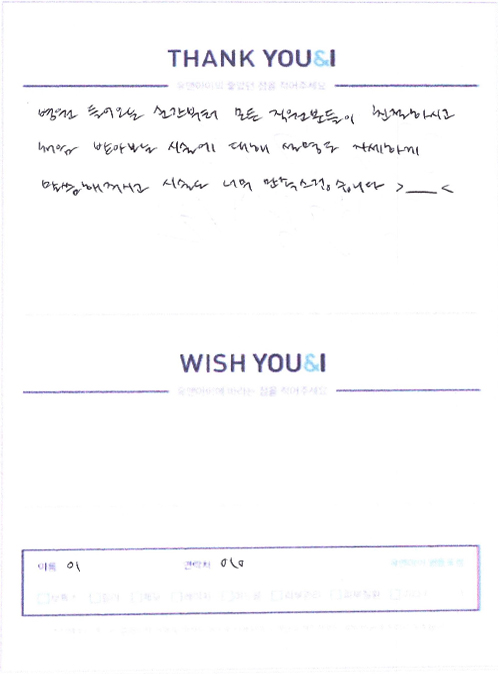 THANK YOU&I
유앤아이의 좋았던 점을 적어주세요
병원 들어오는 순간부터 모든 직원분들이 친절하시고
처음 받아보는 시술에 대해 설명도 자세하게
말씀해주시고 시술도 너무 만족스러웠습니다 >___<
WISH YOU&I
유앤아이에 바라는 점을 적어주세요
이름 이 연락처 010